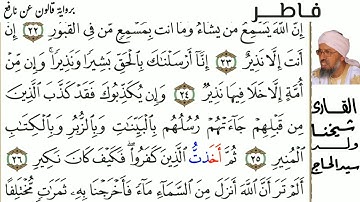 برواية قالون عن نافع
فاطر
إِنَّ اللَّهَ يُسْمِعُ مَن يَشَاءُ وَمَا أَنتَ بِمُسْمِعٍ مَّن فِي الْقُبُورِ ٢٢ إِنْ
أَنتَ إِلَّا نَذِيرٌ ٢٣ إِنَّا أَرْسَلْنَاكَ بِالْحَقِّ بَشِيرًا وَنَذِيرًا وَإِن مِّنْ
أُمَّةٍ إِلَّا خَلَا فِيهَا نَذِيرٌ ٢٤ وَإِن يُكَذِّبُوكَ فَقَدْ كَذَّبَ الَّذِينَ
مِن قَبْلِهِمْ جَاءَتْهُمْ رُسُلُهُم بِالْبَيِّنَاتِ وَبِالزُّبُرِ وَبِالْكِتَابِ
الْمُنِيرِ ٢٥ ثُمَّ أَخَذتُّ الَّذِينَ كَفَرُوا فَكَيْفَ كَانَ نَكِيرِ ٢٦
أَلَمْ تَرَ أَنَّ اللَّهَ أَنزَلَ مِنَ السَّمَاءِ مَاءً فَأَخْرَجْنَا بِهِ ثَمَرَاتٍ مُّخْتَلِفًا
القارئ
شيخنا
ولد
سيد الحاج